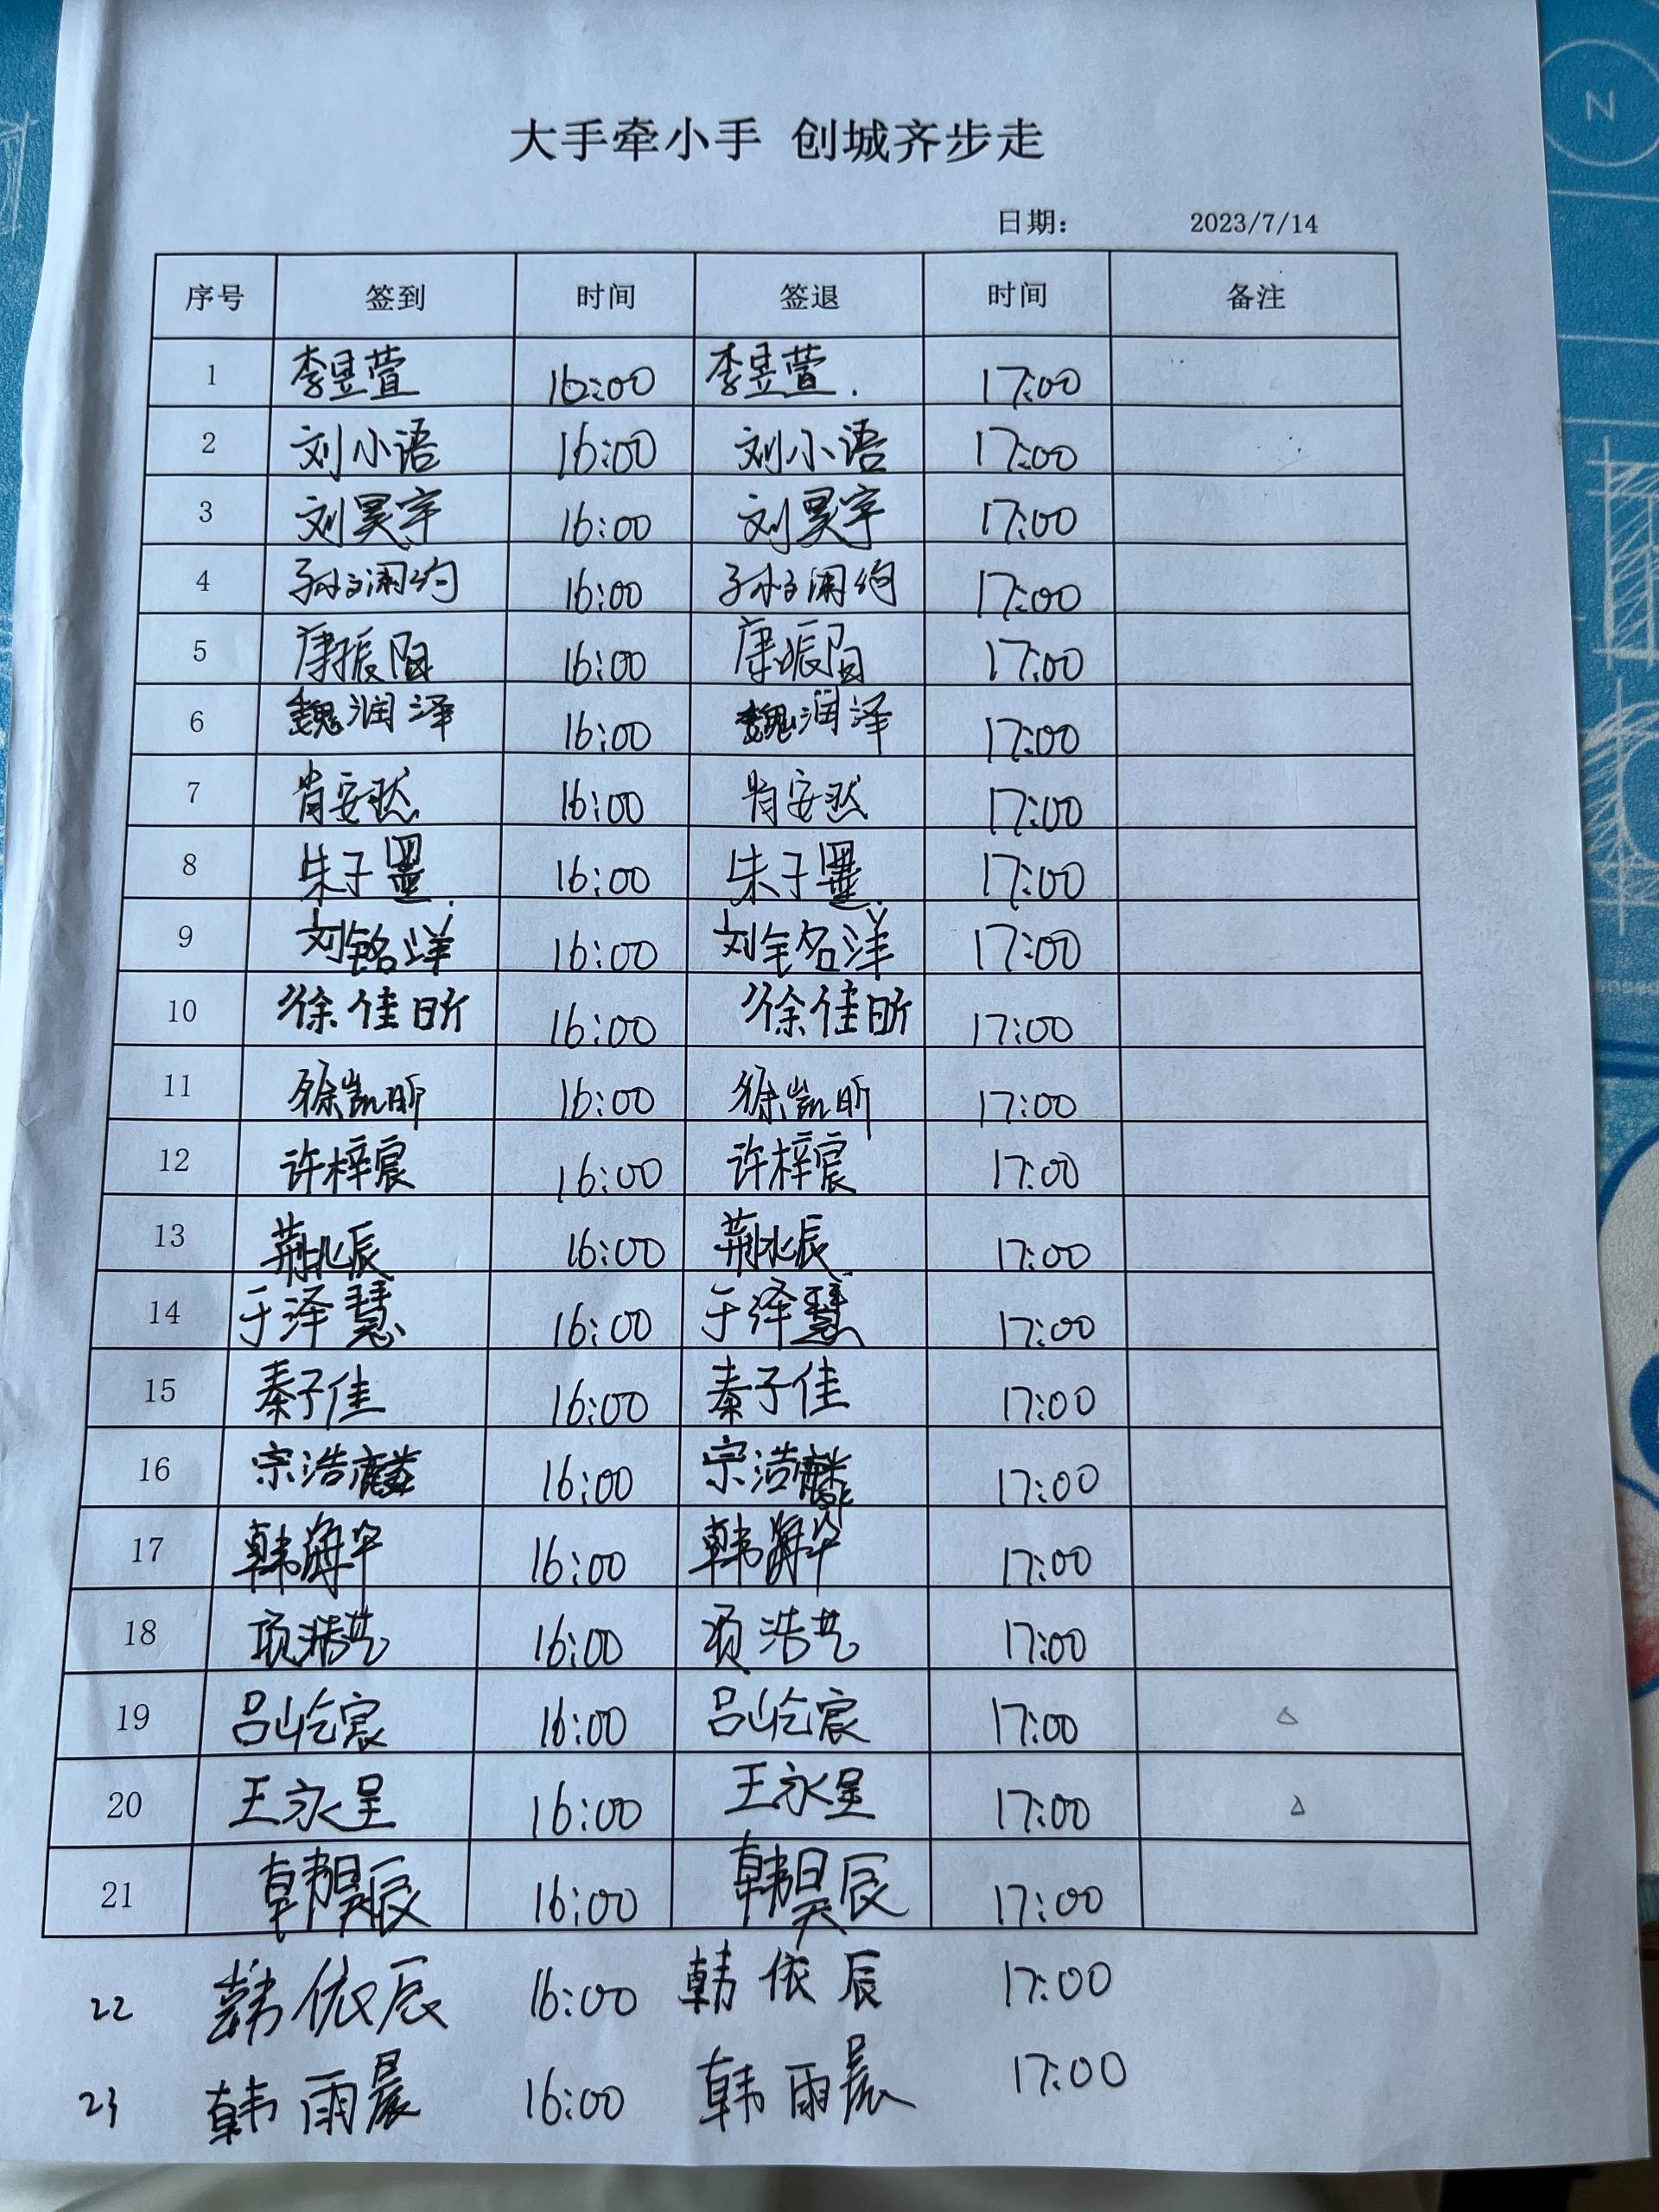 大手牵小手 创城齐步走
日期: 2023/7/14
序号 签到 时间 签退 时间 备注
1 李昱萱 16:00 李昱萱. 17:00
2 刘小语 16:00 刘小语 17:00
3 刘昊宇 16:00 刘昊宇 17:00
4 16:00 17:00
5 康振阳 16:00 康振阳 17:00
6 魏润泽 16:00 魏润泽 17:00
7 肖安然 16:00 肖安然 17:00
8 朱子墨 16:00 朱子墨 17:00
9 刘铭洋 16:00 刘铭洋 17:00
10 徐佳昕 16:00 徐佳昕 17:00
11 徐凯昕 16:00 徐凯昕 17:00
12 许梓宸 16:00 许梓宸 17:00
13 荆北辰 16:00 荆北辰 17:00
14 于泽慧 16:00 于泽慧 17:00
15 秦子佳 16:00 秦子佳 17:00
16 宗浩麟 16:00 宗浩麟 17:00
17 16:00 17:00
18 项浩艺 16:00 项浩艺 17:00
19 吕屹宸 16:00 吕屹宸 17:00 △
20 王永呈 16:00 王永呈 17:00 △
21 韩昊辰 16:00 韩昊辰 17:00
22 韩依辰 16:00 韩依辰 17:00
23 韩雨晨 16:00 韩雨晨 17:00
N